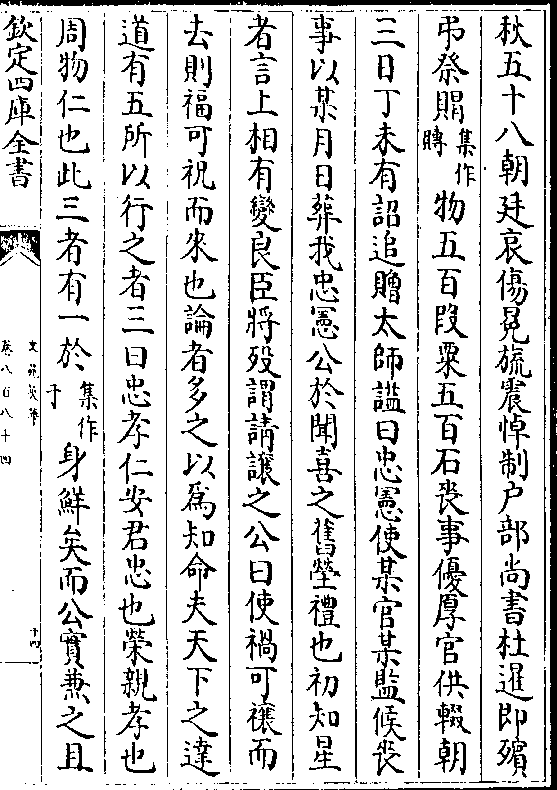 秋五十八朝廷哀傷冕旒震悼制户部尚書杜暹即殯
弔祭賵集作賻物五百段粟五百石喪事優厚官供輟朝
三日丁未有詔追贈太師諡曰忠憲使某官某監候喪
事以某月日葬我忠憲公於聞喜之舊塋禮也初知星
者言上相有變良臣將歿謂請讓之公曰使禍可禳而
去則福可祝而來也論者多之以為知命夫天下之達
道有五所以行之者三曰忠孝仁安君忠也榮親孝也
周物仁也此三者有一於集作于身鮮矣而公實兼之且
欽定四庫全書
文苑英華
卷八百八十四
十四